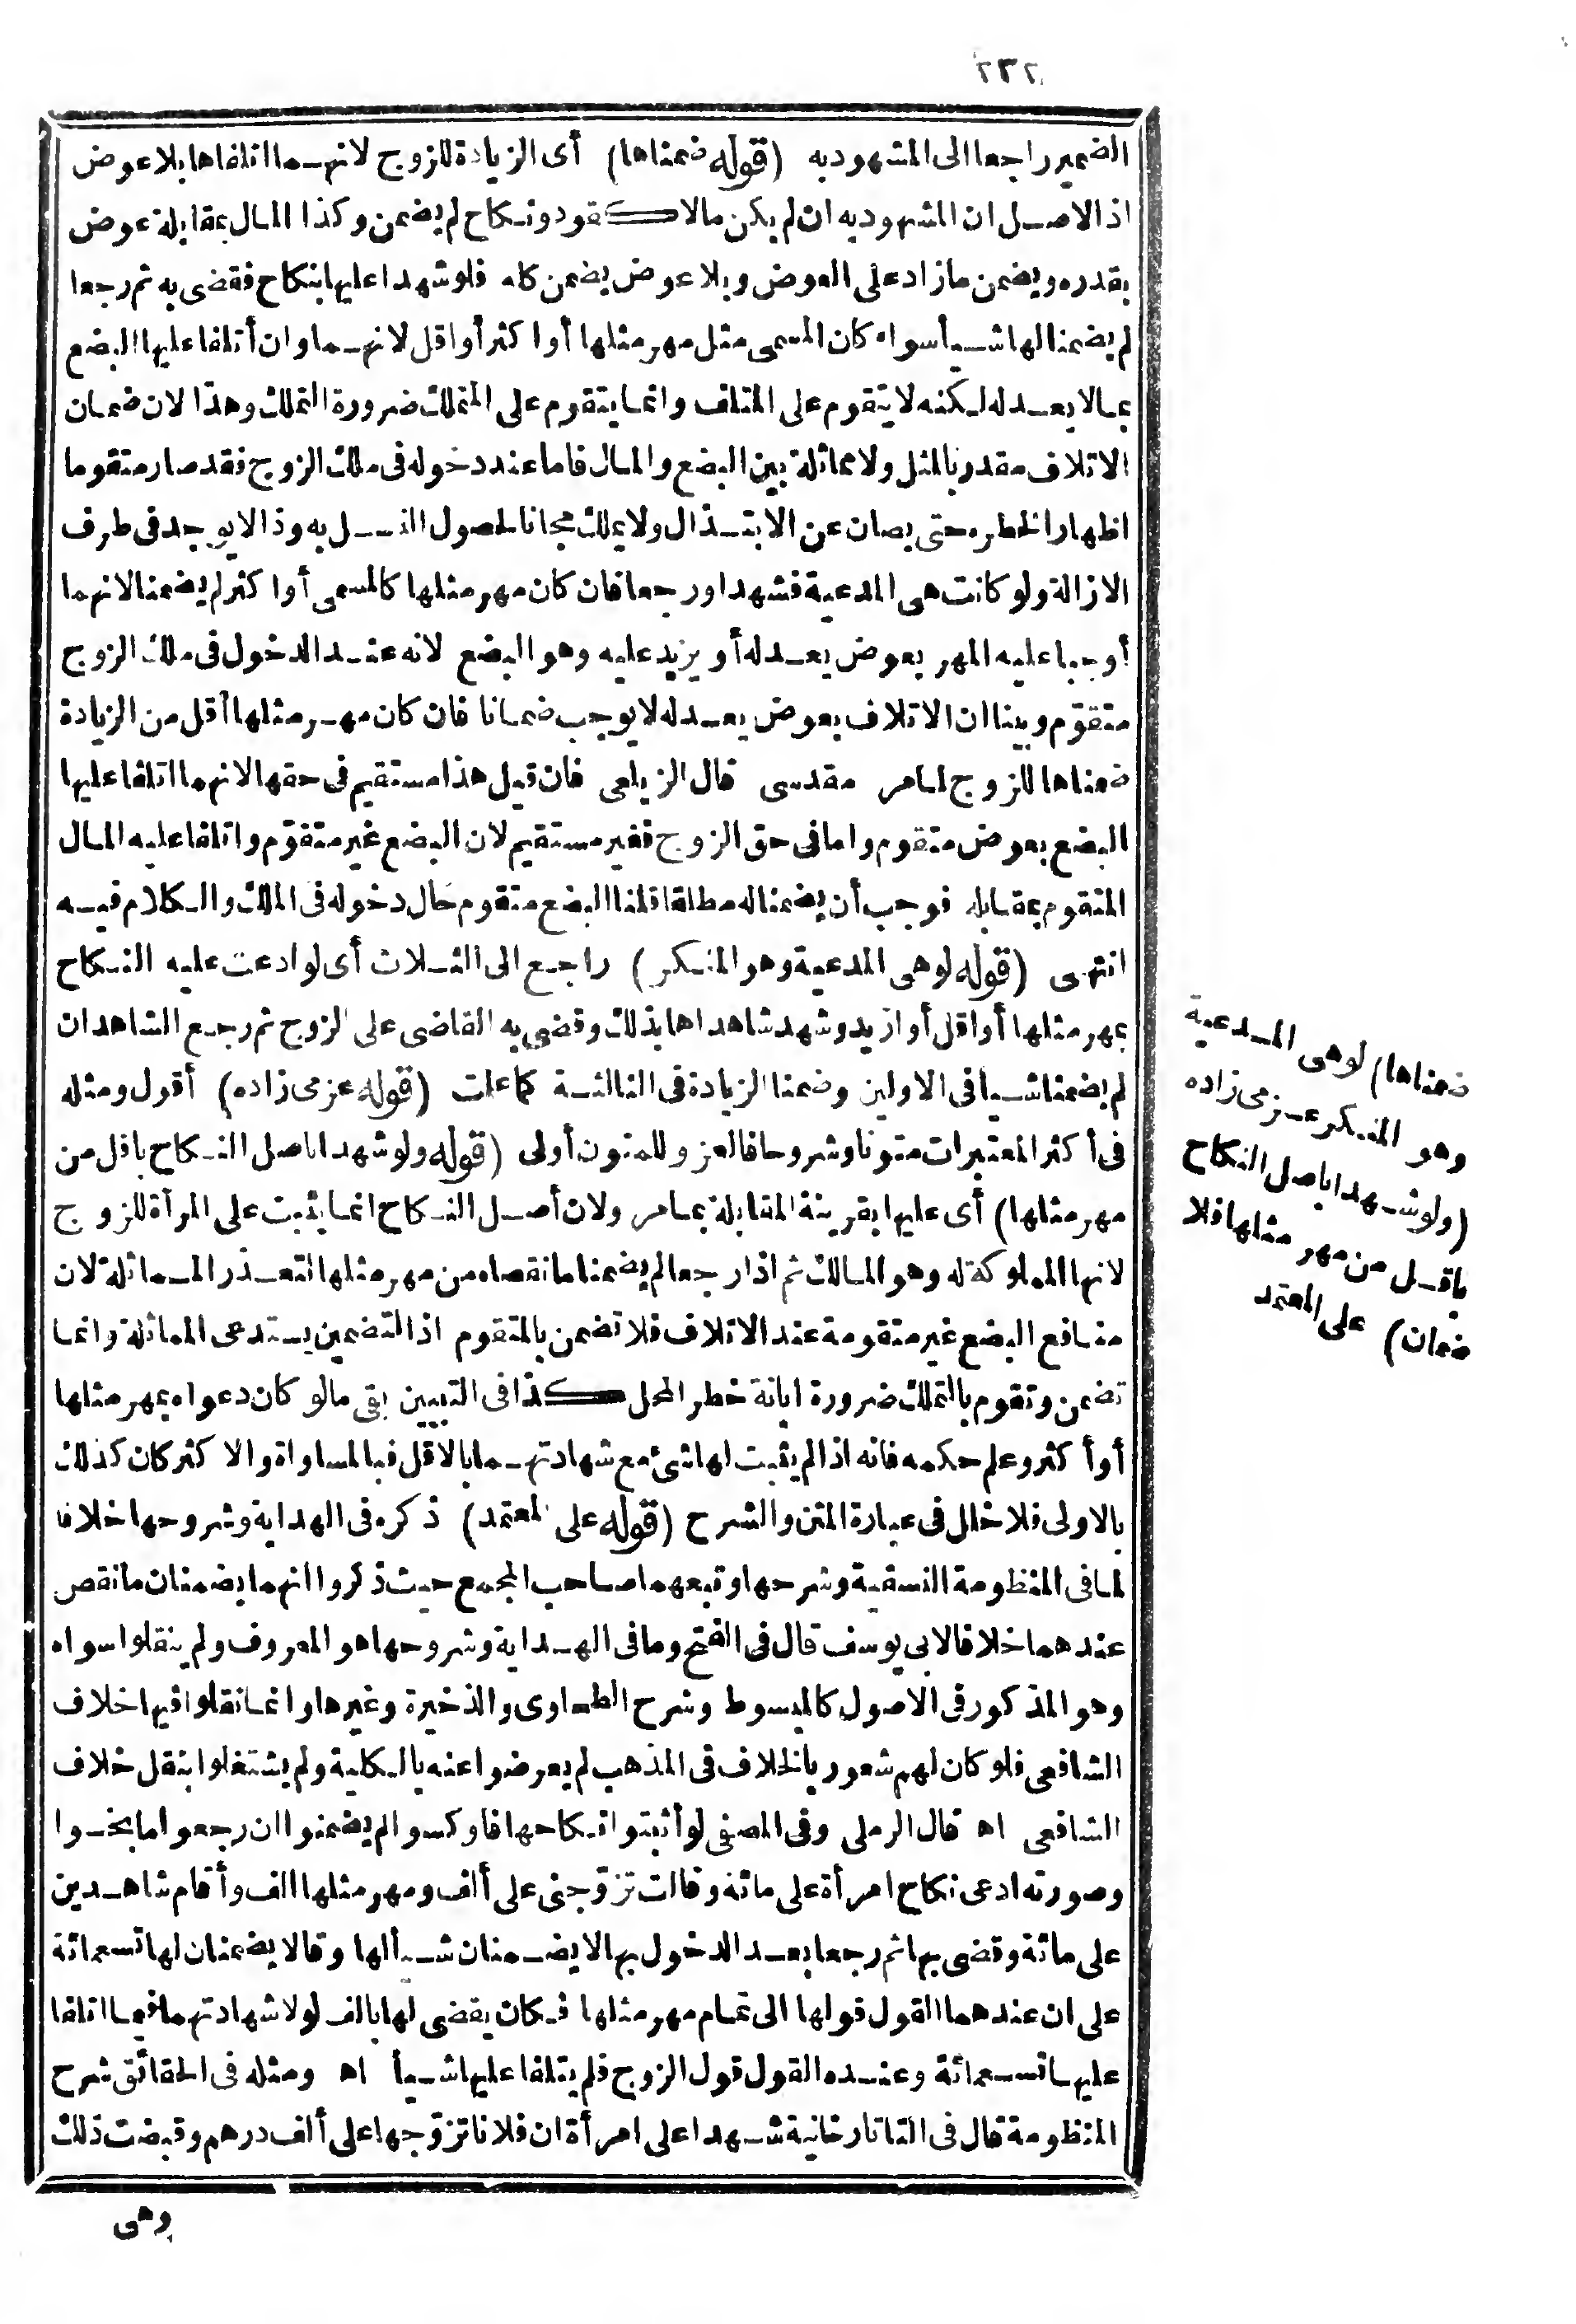 ٢٣٢
الضمير راجعا الى المشهود به (قوله ضمناها) أى الزيادة للزوج لانهما اتلفاها بلا عوض
اذ الاصل ان المشهود به ان لم يكن مالا كقود ونكاح لم يضمن وكذا المال بمقابلة عوض
بقدره ويضمن ما زاد على العوض وبلا عوض يضمن كله فلو شهدا عليها بنكاح فقضى به ثم رجعا
لم يضمنا لها شيأ سواء كان المسمى مثل مهر مثلها أو اكثر أو اقل لانهما وان أتلفا عليها البضع
بمالا يعدله لكنه لا يتقوم على المتلف وانما يتقوم على المتملك ضرورة التملك وهذا لان ضمان
الاتلاف مقدر بالمثل ولا مماثلة بين البضع والمال فاما عند دخوله فى ملك الزوج فقد صار متقوما
اظهارا لخطره حتى يصان عن الابتذال ولا يملك مجانا لحصول النسل به وذا لا يوجد فى طرف
الازالة ولو كانت هى المدعية فشهدا ورجعا فان كان مهر مثلها كالمسمى أو اكثر لم يضمنا لانهما
أوجبا عليه المهر بعوض يعدله أو يزيد عليه وهو البضع لانه عند الدخول فى ملك الزوج
متقوّم وبينا ان الاتلاف بعوض يعدله لا يوجب ضمانا فان كان مهر مثلها أقل من الزيادة
ضمناها للزوج لما مر مقدسى قال الزيلعى فان قيل هذا مستقيم فى حقها لانهما اتلفا عليها
البضع بعوض متقوم واما فى حق الزوج فغير مستقيم لان البضع غير متقوّم واتلفا عليه المال
المتقوم بمقابله فوجب أن يضمنا له مطلقا قلنا البضع متقوم حال دخوله فى الملك والكلام فيه
انتهى (قوله لو هى المدعية وهو المنكر) راجع الى الثلاث أى لو ادعت عليه النكاح
بمهر مثلها أو اقل أو ازيد وشهد شاهداها بذلك وقضى به القاضى على الزوج ثم رجع الشاهدان
لم يضمنا شيأ فى الاولين وضمنا الزيادة فى الثالثة كما علمت (قوله عزمى زاده) أقول ومثله
فى أكثر المعتبرات متونا وشروحا فالعزو للمتون أولى (قوله ولو شهدا باصل النكاح باقل من
مهر مثلها) أى عليها بقرينة المقابلة بما مر ولان أصل النكاح انما يثبت على المرأة للزوج
لانها المملوكة له وهو المالك ثم اذا رجعا لم يضمنا ما نقصاه من مهر مثلها لتعذر المماثلة لان
منافع البضع غير متقومة عند الاتلاف فلا تضمن بالمتقوم اذ التضمين يستدعى المماثلة وانما
تضمن وتقوم بالتملك ضرورة ابانة خطر المحل كذا فى التبيين بقى ما لو كان دعواه بمهر مثلها
أو أكثر وعلم حكمه فانه اذا لم يثبت لها شئ مع شهادتهما بالاقل فبالمساواة والاكثر كان كذلك
بالاولى فلا خلل فى عبارة المتن والشرح (قوله على المعتمد) ذكره فى الهداية وشروحها خلافا
لما فى المنظومة النسفية وشرحها وتبعهما صاحب المجمع حيث ذكروا انهما يضمنان ما نقص
عندهما خلافا لابى يوسف قال فى الفتح وما فى الهداية وشروحها هو المعروف ولم ينقلوا سواه
وهو المذكور فى الاصول كالمبسوط وشرح الطحاوى والذخيرة وغيرها وانما نقلوا فيها خلاف
الشافعى فلو كان لهم شعور بالخلاف فى المذهب لم يعرضوا عنه بالكلية ولم يشتغلوا بنقل خلاف
الشافعى اه قال الرملى وفى المصفى لو أثبتوا نكاحها فاوكسوا لم يضمنوا ان رجعوا ما بخسوا
وصورته ادعى نكاح امرأة على مائة وقالت تزوّجنى على ألف ومهر مثلها الف وأقام شاهدين
على مائة وقضى بها ثم رجعا بعد الدخول بها لا يضمنان شيأ لها وقالا يضمنان لها تسعمائة
على ان عندهما القول قولها الى تمام مهر مثلها فكان يقضى لها بالف لولا شهادتهما فيما اتلفا
عليها تسعمائة وعنده القول قول الزوج فلم يتلفا عليها شيأ اه ومثله فى الحقائق شرح
المنظومة قال فى التاتارخانية شهدا على امرأة ان فلانا تزوّجها على ألف درهم وقبضت ذلك
وهى
ضمناها) لو هى المدعية
وهو المنكر عزمى زاده
(ولو شهدا باصل النكاح
باقل من مهر مثلها فلا
ضمان) على المعتمد